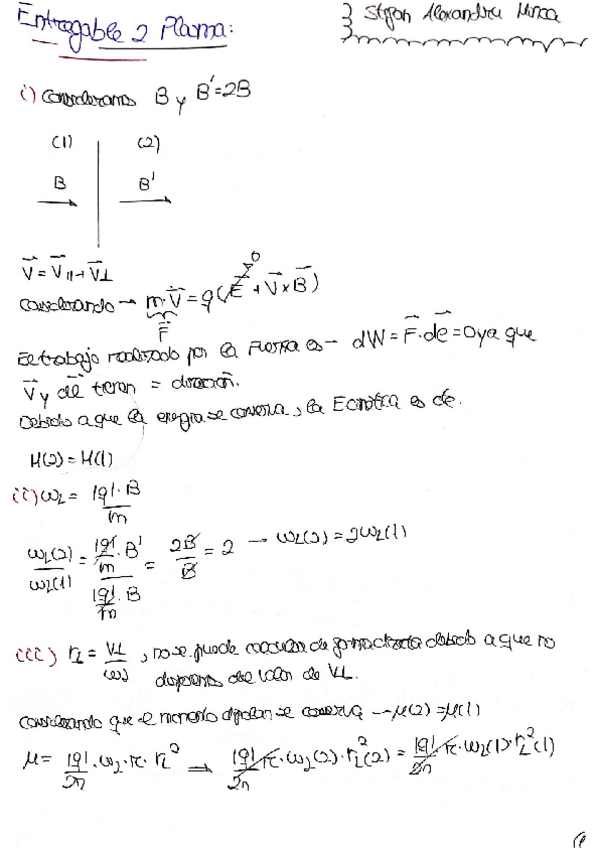 Entregable 2 Plasma:
Stefan Alexandru Mirca
i) Consideramos B y B' = 2B
(1) (2)
B B'
V⃗ = V⃗|| + V⃗⊥
Considerando → m·V⃗ = q(E⃗ + V⃗ x B⃗) 0
F⃗
El trabajo realizado por la Fuerza es → dW = F⃗·de⃗ = 0 ya que
V⃗ y de⃗ tienen = dirección.
Debido a que la energía se conserva, la Ecinética es cte.
H(2) = H(1)
ii) ωL = |q|·B / m
ωL(2)/ωL(1) = (|q|/m · B') / (|q|·B/m) = 2B/B = 2 → ωL(2) = 2ωL(1)
iii) rL = V⊥/|ω|, no se puede calcular de forma directa debido a que no
disponemos del valor de V⊥.
Considerando que el momento dipolar se conserva → μ(2) = μ(1)
μ = |q|/2π · ωL · π · rL² → |q|/2π π · ωL(2) · rL²(2) = |q|/2π π · ωL(1) · rL²(1)